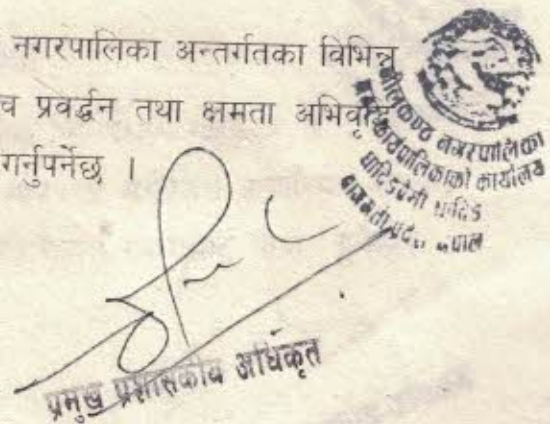 नगरपालिका अन्तर्गतका विभिन्न
च प्रवर्द्धन तथा क्षमता अभिवृद्धि
गर्नुपर्नेछ ।
नीलकण्ठ नगरपालिका
नगर कार्यपालिकाको कार्यालय
धादिङबेसी धादिङ
बागमती प्रदेश, नेपाल
प्रमुख प्रशासकीय अधिकृत